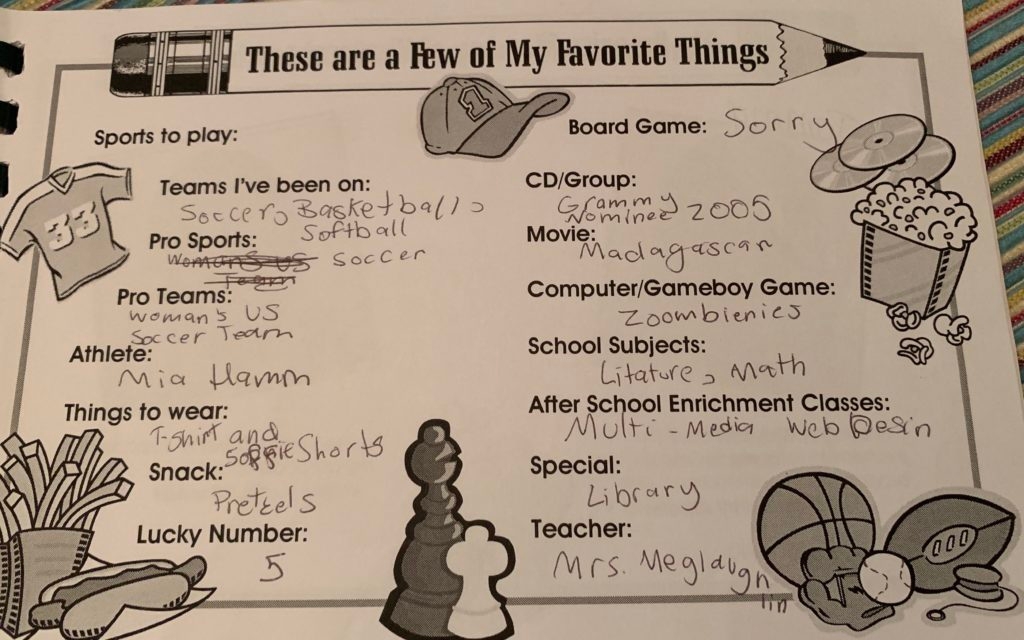 These are a Few of My Favorite Things
Sports to play:
Teams I've been on:
Soccer, Basketball,
Softball
Pro Sports:
Womans US soccer
Team
Pro Teams:
Woman's US
Soccer Team
Athlete:
Mia Hamm
Things to wear:
T-shirt and
Shorts
Snack:
Pretzels
Lucky Number:
5
33
1
Board Game: Sorry
CD/Group:
Grammy
Nominee 2005
Movie:
Madagascar
Computer/Gameboy Game:
Zoombienies
School Subjects:
Litature, Math
After School Enrichment Classes:
Multi-Media Web Desin
Special:
Library
Teacher:
Mrs. Meglaugn
lin